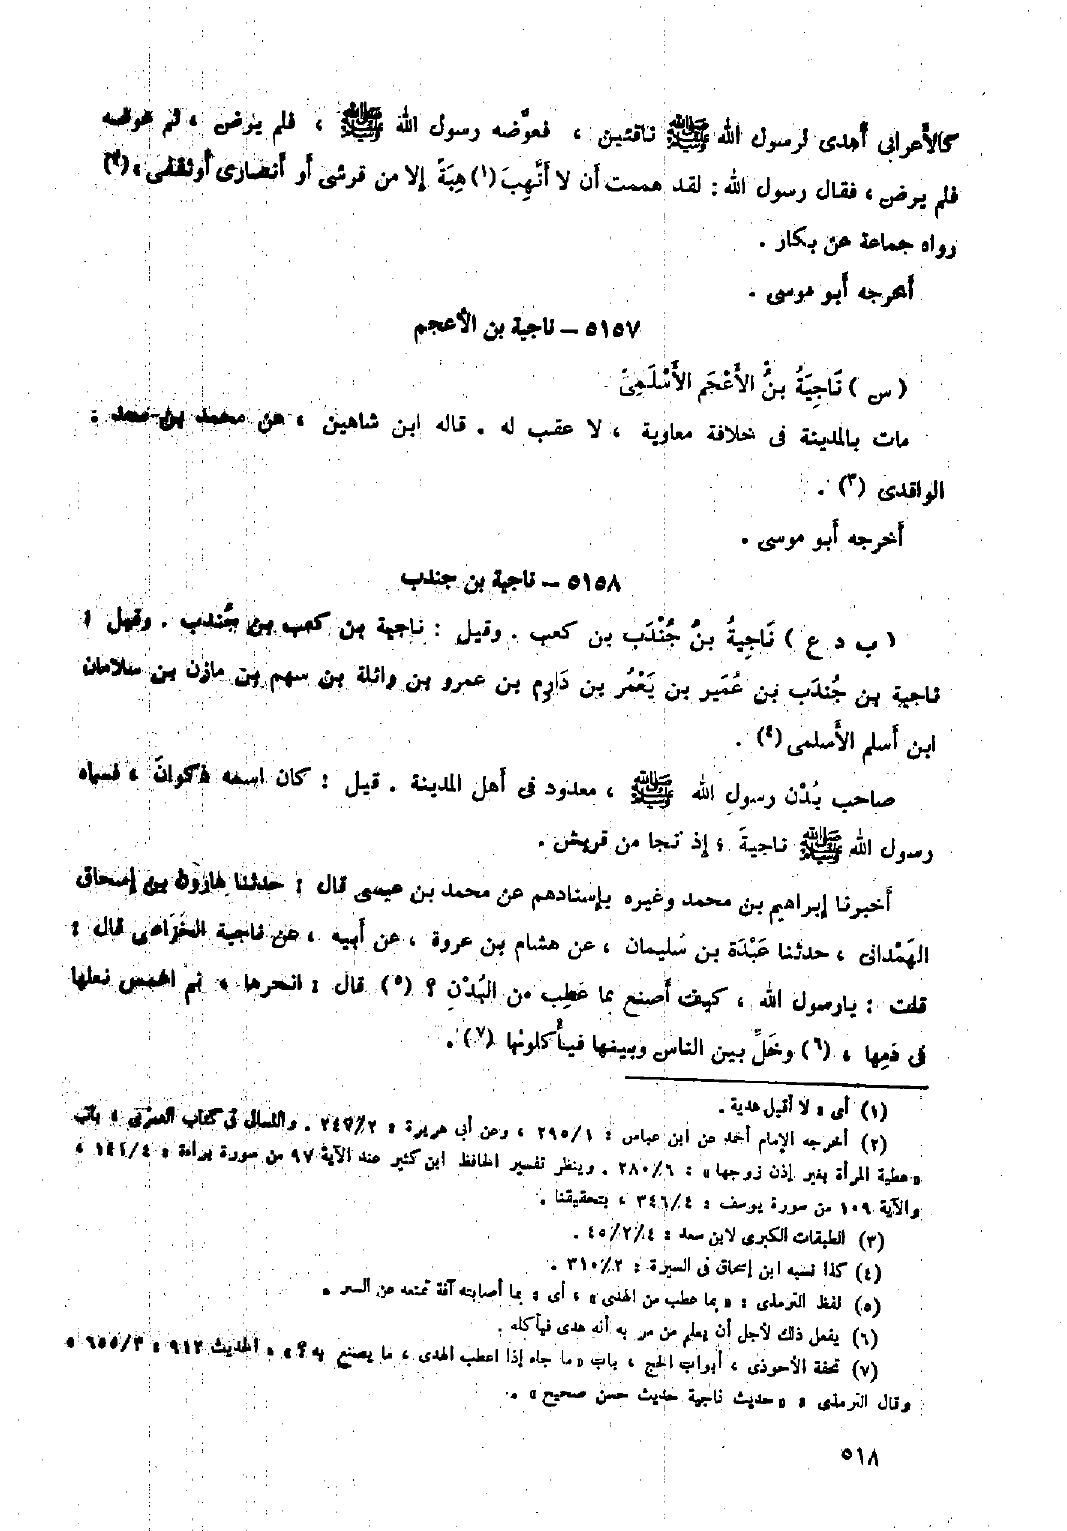 كالأَعرابى أَهدى لرسول الله ﷺ ناقتين ، فعوّضه رسول الله ﷺ ، فلم يرض ، ثم عوضه
فلم يرض ، فقال رسول الله : لقد هممت أَن لا أَتَّهِبَ (١) هِبَةً إلا من قرشى أَو أَنصارى أَو ثقفى » (٢)
رواه جماعة عن بكار .
أَخرجه أَبو موسى .
٥١٥٧ – ناجية بن الأَعجم
( س ) نَاجِيَةُ بنُ الأَعْجَم الأَسْلَمِىّ
مات بالمدينة فى خلافة معاوية ، لا عقب له . قاله ابن شاهين ، عن محمد بن سعد :
الواقدى (٣) .
أَخرجه أَبو موسى .
٥١٥٨ – ناجية بن جندب
( ب د ع ) نَاجِيةُ بنُ جُنْدَب بن كعب . وقيل : ناجية بن كعب بن جُندب . وقيل :
ناجية بن جُندَب بن عُمَير بن يَعْمُر بن دَارِم بن عمرو بن واثلة بن سهم بن مازن بن سلامان
ابن أَسلم الأَسلمى (٤) .
صاحب بُدْن رسولِ الله ﷺ ، معدود فى أَهل المدينة . قيل : كان اسمه ذكوانَ ، فسماه
رسول الله ﷺ ناجيةَ ؛ إذ نجا من قريش .
أَخبرنا إبراهيم بن محمد وغيره بإسنادهم عن محمد بن عيسى قال : حدثنا هارون بن إسحاق
الهَمْدانى ، حدثنا عَبْدَة بن سُليمان ، عن هشام بن عروة ، عن أَبيه ، عن ناجية الخزَاعى قال :
قلت : يارسول الله ، كيف أَصنع بما عَطِب من البُدْنِ ؟ (٥) قال : انحرها ، ثم اغمس نعلها
فى دَمِها ، (٦) وخَلِّ بين الناس وبينها فيأْكلونها (٧) .
(١) أى : لا أقبل هدية .
(٢) أخرجه الإمام أحمد عن ابن عباس : ١/ ٢٩٥ ، وعن أبى هريرة : ٢/ ٢٤٧ . والنسائى فى كتاب العمرى ، باب
« عطية المرأة بغير إذن زوجها » : ٦/ ٢٨٠ . وينظر تفسير الحافظ ابن كثير عند الآية ٩٧ من سورة براءة : ٤/ ١٤١ ،
والآية ١٠٩ من سورة يوسف : ٤/ ٣٤٦ ، بتحقيقنا .
(٣) الطبقات الكبرى لابن سعد : ٤/ ٢/ ٤٥ .
(٤) كذا نسبه ابن إسحاق فى السيرة : ٢/ ٣١٠ .
(٥) لفظ الترمذى : « بما عطب من الهدى » ، أى : بما أصابته آفة تمنعه عن السير .
(٦) يفعل ذلك لأجل أن يعلم من مر به أنه هدى فيأكله .
(٧) تحفة الأحوذى ، أبواب الحج ، باب « ما جاء إذا عطب الهدى ، ما يصنع به ؟ » ، الحديث ٩١٢ : ٣/ ٦٥٥ ،
وقال الترمذى : « حديث ناجية حديث حسن صحيح » .
٥١٨